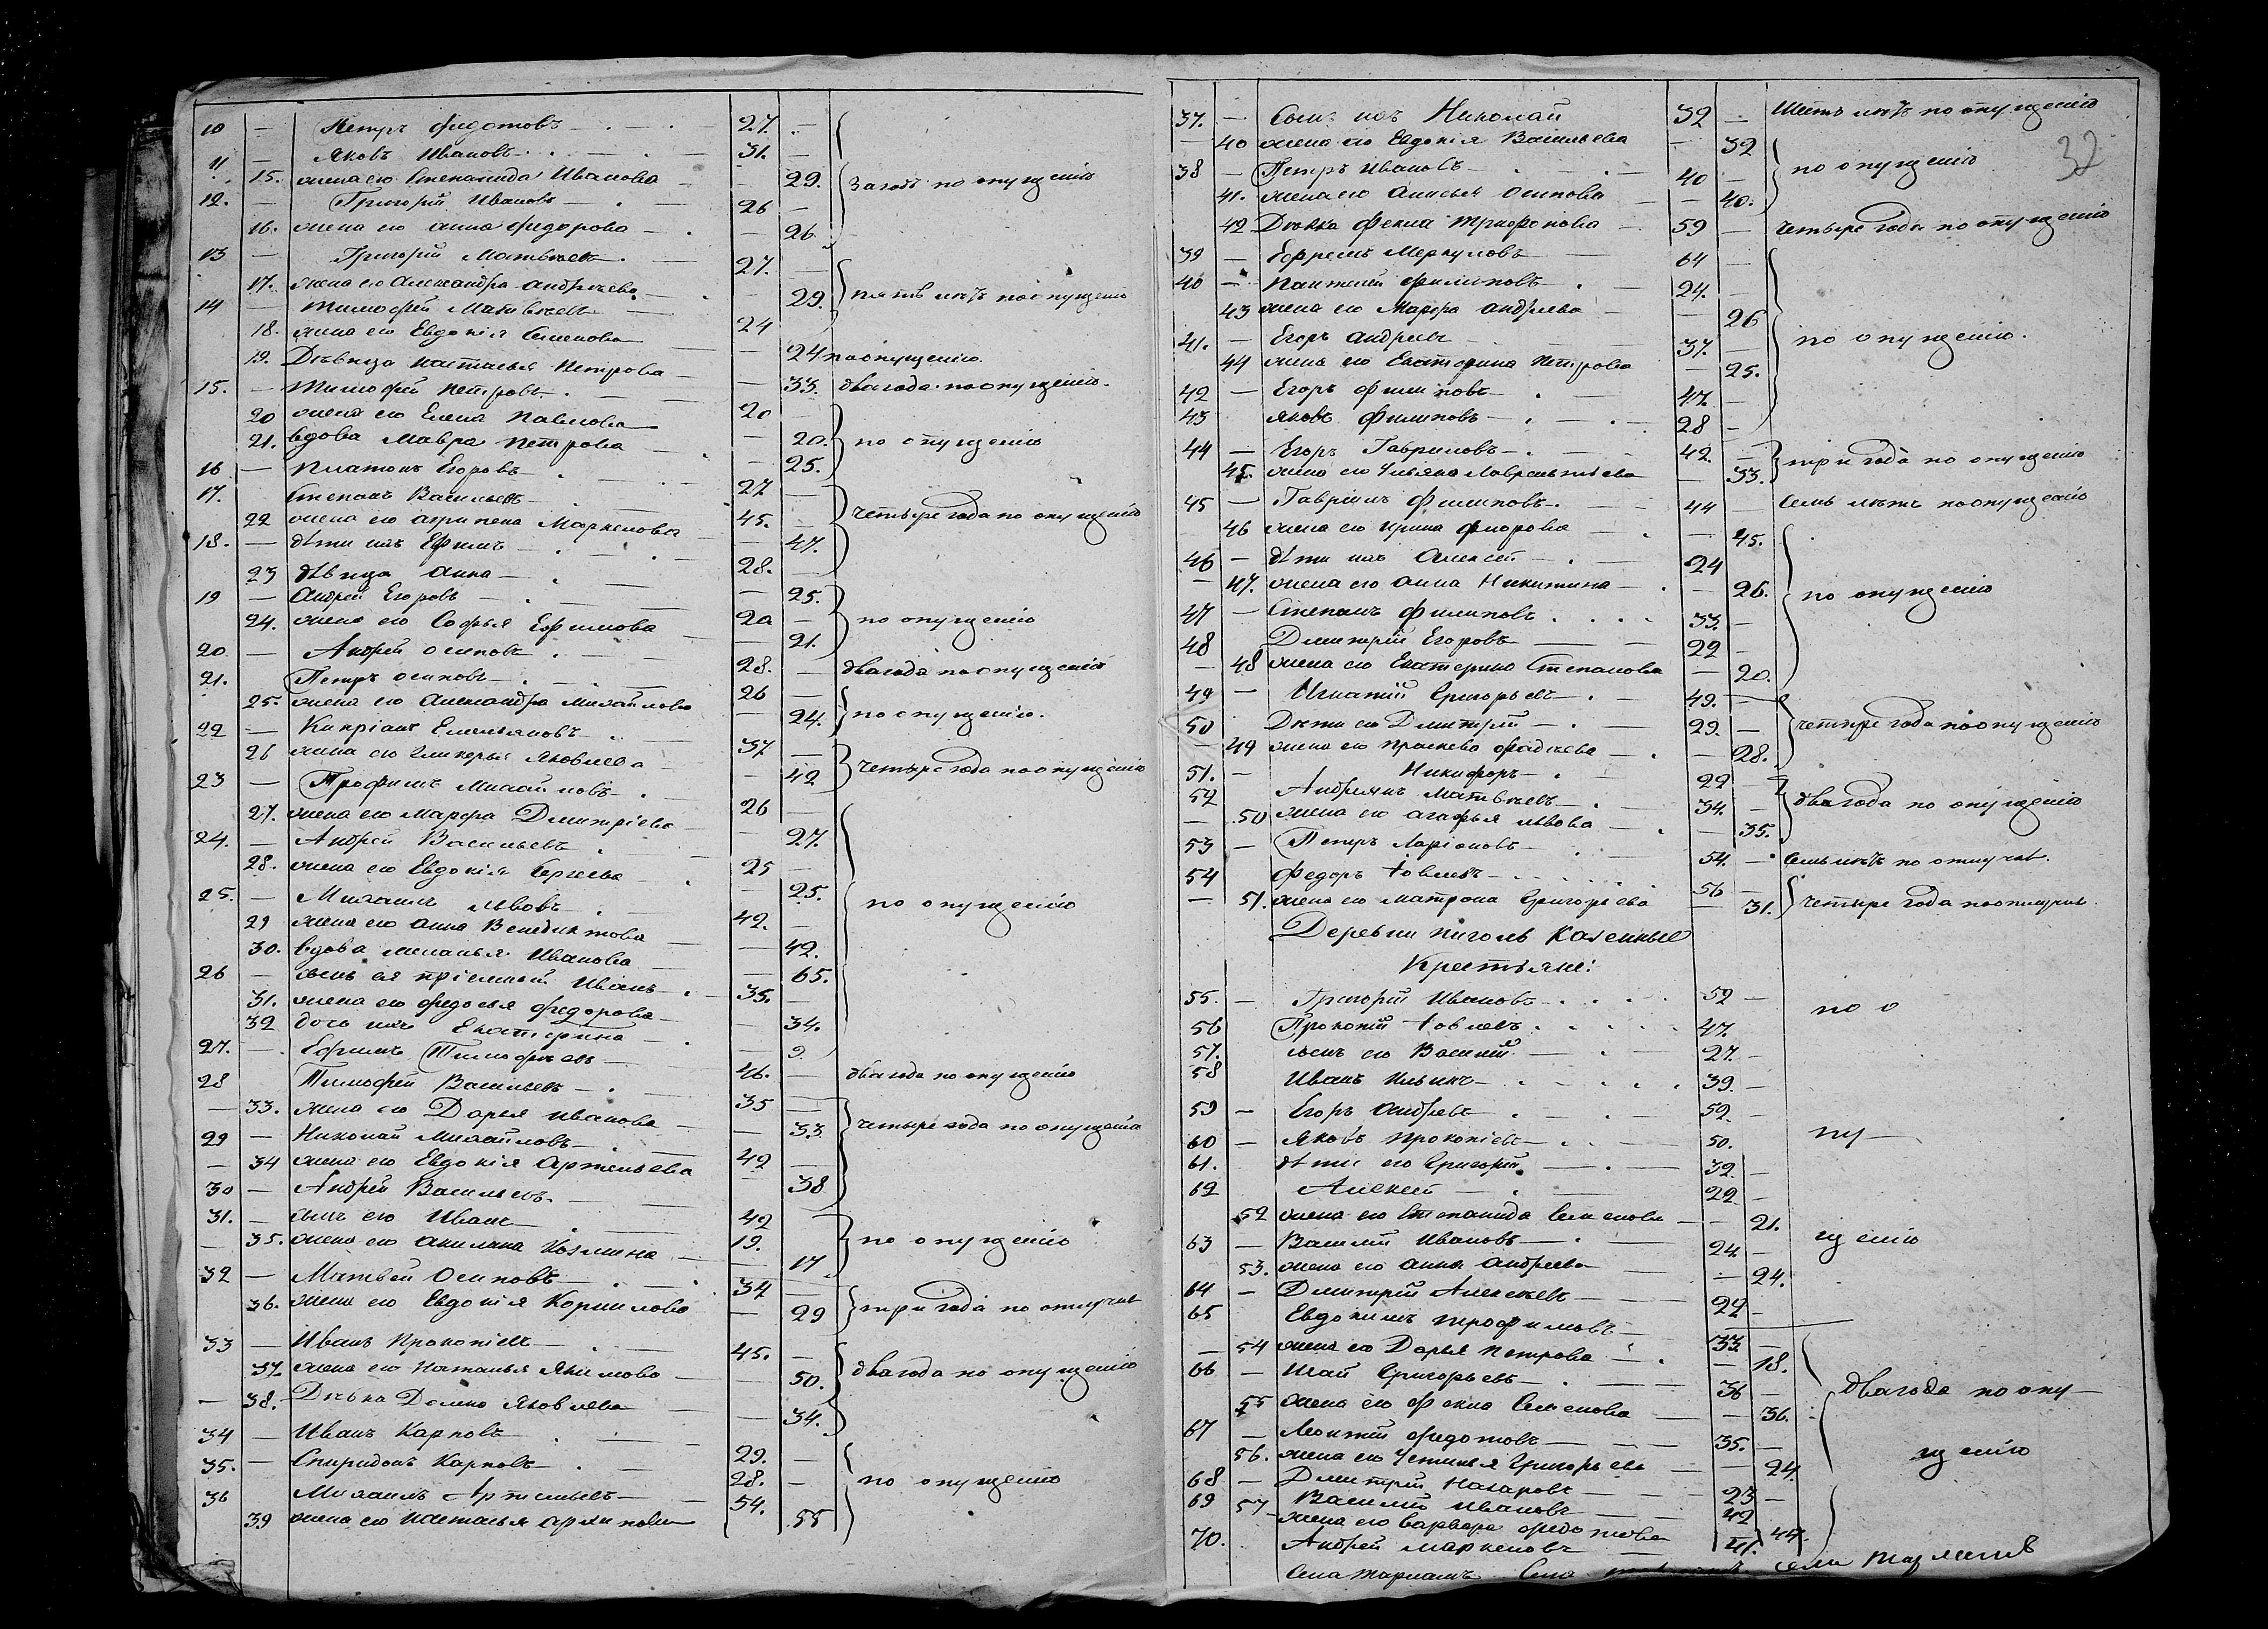 10 — Петръ Федотовъ — 27. —
11 — Яковъ Ивановъ — 31. —
15. жена его Степанида Иванова — 29. За годъ по опущенію
12. — Григорій Ивановъ — 26 —
16. жена его Анна Федорова — 26.
13 — Григорій Матвѣевъ — 27. —
17. жена его Александра Андреева — 29. пять лѣтъ по опущенію
14 — Тимофей Матвѣевъ — 24
18. жена его Евдокія Семенова — 24 по опущенію.
19. Дѣвица Настасья Петрова — 33. два года по опущенію.
15. — Тимофей Петровъ — 20
20 жена его Елена Павлова — 20. по опущенію
21. вдова Мавра Петрова — 25.
16 — Платонъ Егоровъ — 27 —
17. Степанъ Васильевъ — 45. — четыре года по опущенію
22 жена его Агрипена Маркелова — 47.
18. — дѣти ихъ Ефимъ — 28. —
23 дѣвица Анна — 25.
19 — Андрей Егоровъ — 20 — по опущенію
24. жена его Софья Ефимова — 21.
20 — Андрей Осиповъ — 28. — два года по опущенію
21. Петръ Осиповъ — 26 —
25. жена его Александра Михайлова — 24. по опущенію.
22 — Кипріанъ Емельяновъ — 37 —
26 жена его Гликерья Яковлева — 42 четыре года по опущенію
23 — Трофимъ Михайловъ — 26 —
27. жена его Марфа Дмитріева — 27.
24. — Андрей Васильевъ — 25 —
28. жена его Евдокія Сергеева — 25.
25. — Михаилъ Львовъ — 42. — по опущенію
29 жена его Анна Венедиктова — 42.
30. вдова Меланья Иванова — 65.
26 — сынъ ея пріемный Иванъ — 35. —
31. жена его Федосья Федорова — 34.
32 дочь ихъ Екатерина — 9.
27. — Ефимъ Тимофѣевъ — 46. — два года по опущенію
28 Тимофей Васильевъ — 35 —
— 33. жена его Дарья Иванова — 33 четыре года по опущенію
29 — Николай Михайловъ — 42 —
— 34 жена его Евдокія Артемьева — 38
30 — Андрей Васильевъ — 42
31. — сынъ его Иванъ — 19. по опущенію
— 35. жена его Акилина Козмина — 17
32 — Матвей Осиповъ — 34 —
36. жена его Евдокія Корнилова — 29 три года по отлучке
33 — Иванъ Прокопіевъ — 45. —
37. жена его Наталья Якимова — 50. два года по опущенію
— 38. Дѣвка Домна Яковлева — 34.
34 — Иванъ Карповъ — 29. —
35. — Спиридонъ Карповъ — 28. — по опущенію
36 Михаилъ Артемьевъ — 54.
39 жена его Настасья Архипова 55
32
37. — Сынъ ихъ Николай 32 — Шесть лѣтъ по опущенію
— 40 жена его Евдокія Васильева — 32
38 — Петръ Ивановъ — 40 — по опущенію
41. жена его Анисья Осипова — 40.
42 Дѣвка Фекла Трифонова 59 — четыре года по опущенію
39 — Ефремъ Меркуловъ — 64 —
40 — Пантелей Филиповъ — 24. —
43 жена его Марфа Андреева — 26
41. — Егоръ Андреевъ — 37. — по опущенію.
44 жена его Екатерина Петрова — 25.
42 — Егоръ Филиповъ — 47 —
43 Яковъ Филиповъ — 28 —
44 — Егоръ Гавриловъ — 42. — три года по опущенію
45. жена его Ульяна Лаврентьева — 33.
45 — Гаврилъ Филиповъ — 44 Семь лѣтъ по опущенію
46 жена его Ирина Флорова — 45.
46 — дѣти ихъ Алексей — 24
— 47. жена его Анна Никитина — 26. по опущенію
47 — Степанъ Филиповъ 33. —
48 Дмитрій Егоровъ — 22 —
— 48 жена его Екатерина Степанова — 20.
49 — Игнатій Григорьевъ — 49. —
50 Дѣти его Дмитрій — 29. — четыре года по опущенію
— 49 жена его Прасковья Фадѣева — 28.
51. — Никифоръ — 22 —
52 Андреянъ Матвѣевъ — 34. — два года по опущенію
— 50 жена его Агафья Львова — 35.
53 — Петръ Ларіоновъ 54. — семь лѣтъ по отлучке.
54 Федоръ Іовлевъ — 56 —
— 51. жена его Матрона Григорьева — 31. четыре года по отлучке.
Деревни Казенные
Крестьяне:
55. — Григорій Ивановъ 52 — по о
56 Прокопій Іовлевъ 47. —
57. сынъ его Василій — 27. —
58 Иванъ Ильинъ 39. —
59 — Егоръ Андреевъ 52. —
60 — Яковъ Прокопіевъ — 50. пу—
61. дѣти его Григорій — 32 —
62 Алексей — 22 —
52 жена его Степанида Семенова — 21.
63 — Василій Ивановъ — 24 — щенію
53. жена его Анна Андреева — 24.
64 — Дмитрій Алексѣевъ — 22 —
65 Евдокимъ Трофимовъ 33. —
— 54 жена его Дарья Петрова — 18.
66 — Исай Григорьевъ — 36 — два года по опу—
55 жена его Фекла Семенова — 36.
67 — Леонтій Федотовъ — 35. — щенію
56. жена его Устинья Григорьева — 24.
68 — Дмитрій Назаровъ — 23 —
69 Василій Ивановъ — 42
57 — жена его Варвара Федотова 44.
70. Андрей Маркеловъ — 41.
Села